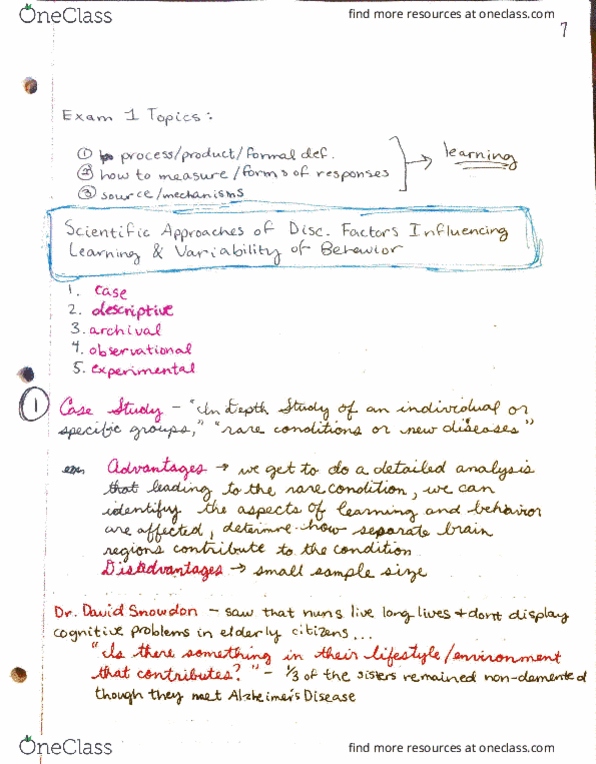 OneClass
find more resources at oneclass.com
7
Exam 1 Topics:
① process/product/formal def.
② how to measure/forms of responses
③ source/mechanisms
learning
Scientific Approaches of Disc. Factors Influencing
Learning & Variability of Behavior
1. case
2. descriptive
3. archival
4. observational
5. experimental
① Case Study - "In Depth Study of an individual or
specific groups," "rare conditions or new diseases"
Advantages → we get to do a detailed analysis
that leading to the rare condition, we can
identify the aspects of learning and behavior
are affected, determine how separate brain
regions contribute to the condition
Disadvantages → small sample size
Dr. David Snowdon - saw that nuns live long lives + don't display
cognitive problems in elderly citizens...
"Is there something in their lifestyle/environment
that contributes?" - 1/3 of the sisters remained non-demented
though they met Alzheimer's Disease
OneClass
find more resources at oneclass.com